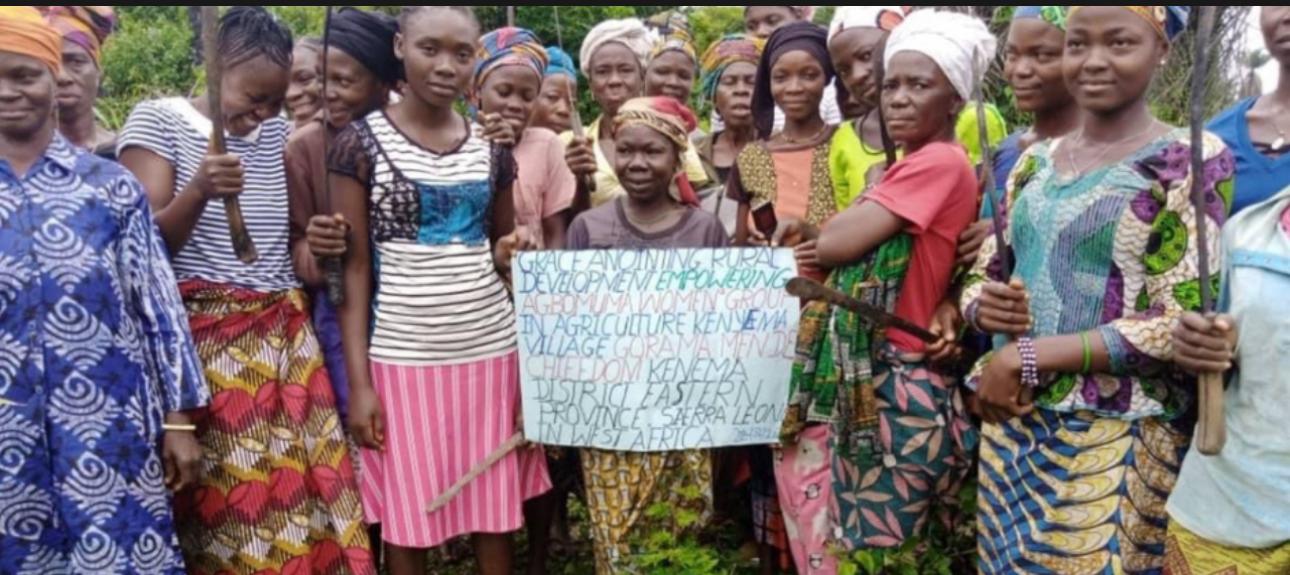 GRACE ANOINTING RURAL
DEVELOPMENT EMPOWERING
AGBOMUMA WOMEN GROUP
IN AGRICULTURE KENYEMA
VILLAGE GORAMA MENDE
CHIEFDOM KENEMA
DISTRICT EASTERN
PROVINCE SIERRA LEON
IN WEST AFRICA